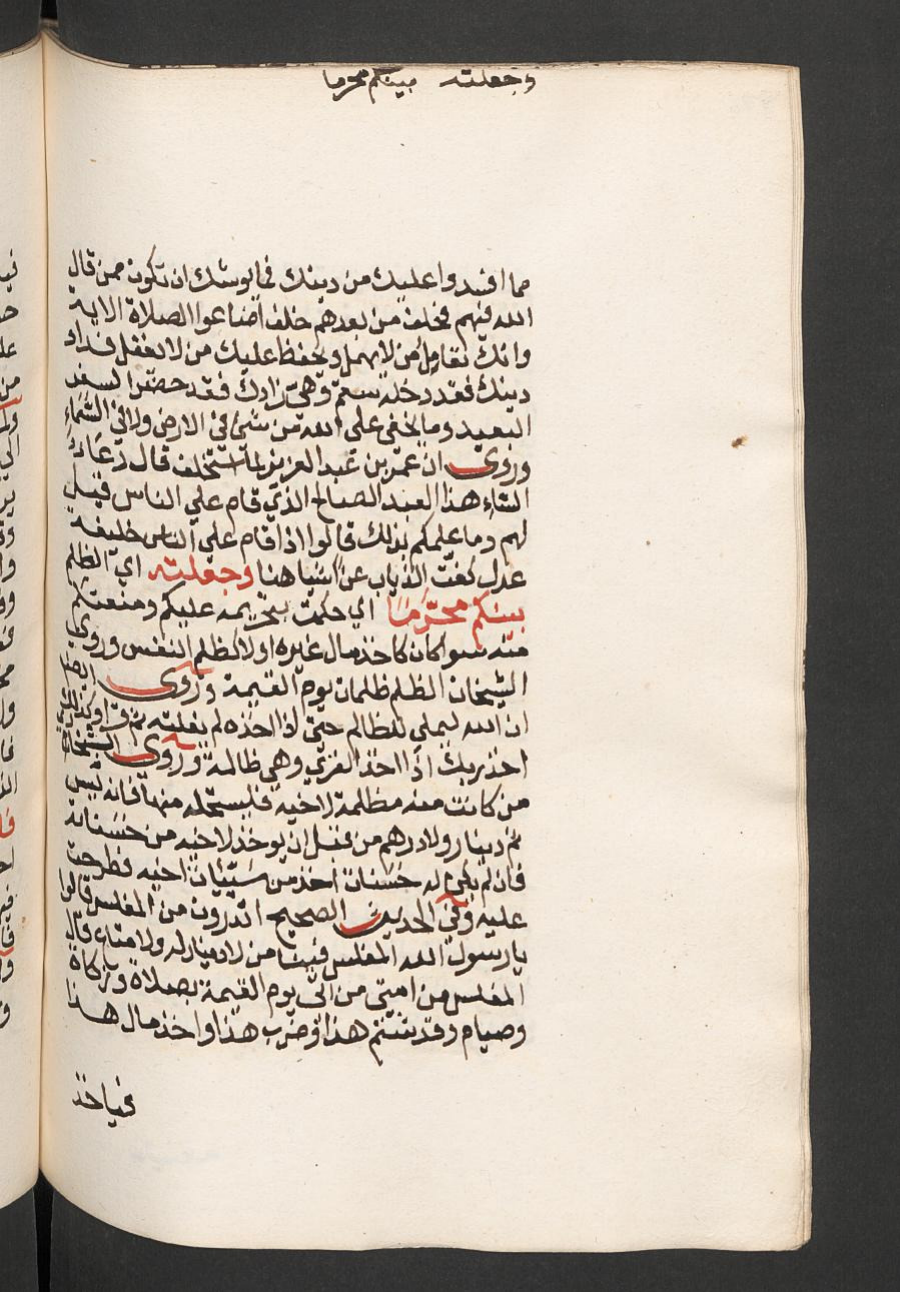 وجعلته بينكم محرما
مما افسدوا عليك من دينك فما يوشك ان تكون ممن قال
الله فيهم فخلف من بعدهم خلف اضاعوا الصلاة الاية
وانك تعامل من لا يجهل ويحفظ عليك من لا يغفل فداو
دينك فقد دخله سقم وهيّ زادك فقد حضر السفر
البعيد وما يخفى على الله من شئ في الارض ولا في السماء
وروى ان عمر بن عبد العزيز لما استخلف قال رعاء
الشاء هذا العبد الصالح الذي قام علي الناس فقيل
لهم وما علمكم بذلك قالوا اذا قام علي الناس خليفة
عدل كفت الذياب عن اشياهنا وجعلته اي الظلم
بينكم محرّما اي حكمت بتحريمه عليكم ومنعتكم
منه سوا كان كاخذ مال غيره او لا كظلم النفس وروي
الشيخان الظلم ظلمات يوم القيمة وروى ايضا
ان الله ليملي للظالم حتى اذا اخذه لم يفلته ثم قرا وكذلك
اخذ ربك اذا اخذ القري وهي ظالمة وروى الشيخان
من كانت عنده مظلمة لاخيه فليستحله منها فانه ليس
ثم دينار ولا درهم من قبل ان يوخذ لاخيه من حسناته
فان لم يكن له حسنات اخذ من سيّئات اخيه فطرحت
عليه وفي الحديث الصحيح اتدرون من المفلس قالوا
يا رسول الله المفلس فينا من لا دينار له ولا متاع قال
المفلس من امتي من اتى يوم القيمة بصلاة وزكاة
وصيام وقد شتم هذا وضرب هذا واخذ مال هذا
فياخذ